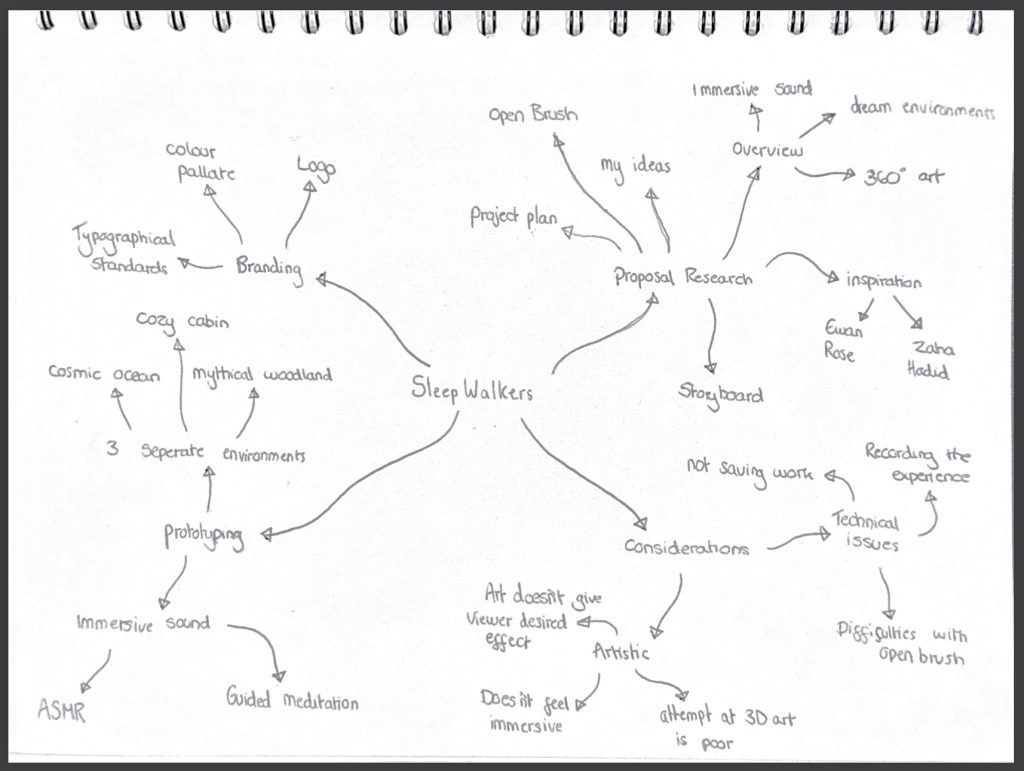 Immersive sound
dream environments
Open Brush
Overview
colour
pallate
Logo
my ideas
360° art
Project plan
Typographical
Standards
Branding
Proposal Research
inspiration
Ewan
Rose
Zaha
Hadid
Cozy cabin
Cosmic ocean
mythical woodland
SleepWalkers
Storyboard
3 seperate environments
not saving work
Recording the
experience
Prototyping
Technical
issues
Considerations
Immersive sound
Art doesn't give
Viewer desired
effect
Artistic
Difficulties with
Open brush
ASMR
Guided meditation
Doesn't feel
immersive
attempt at 3D art
is poor